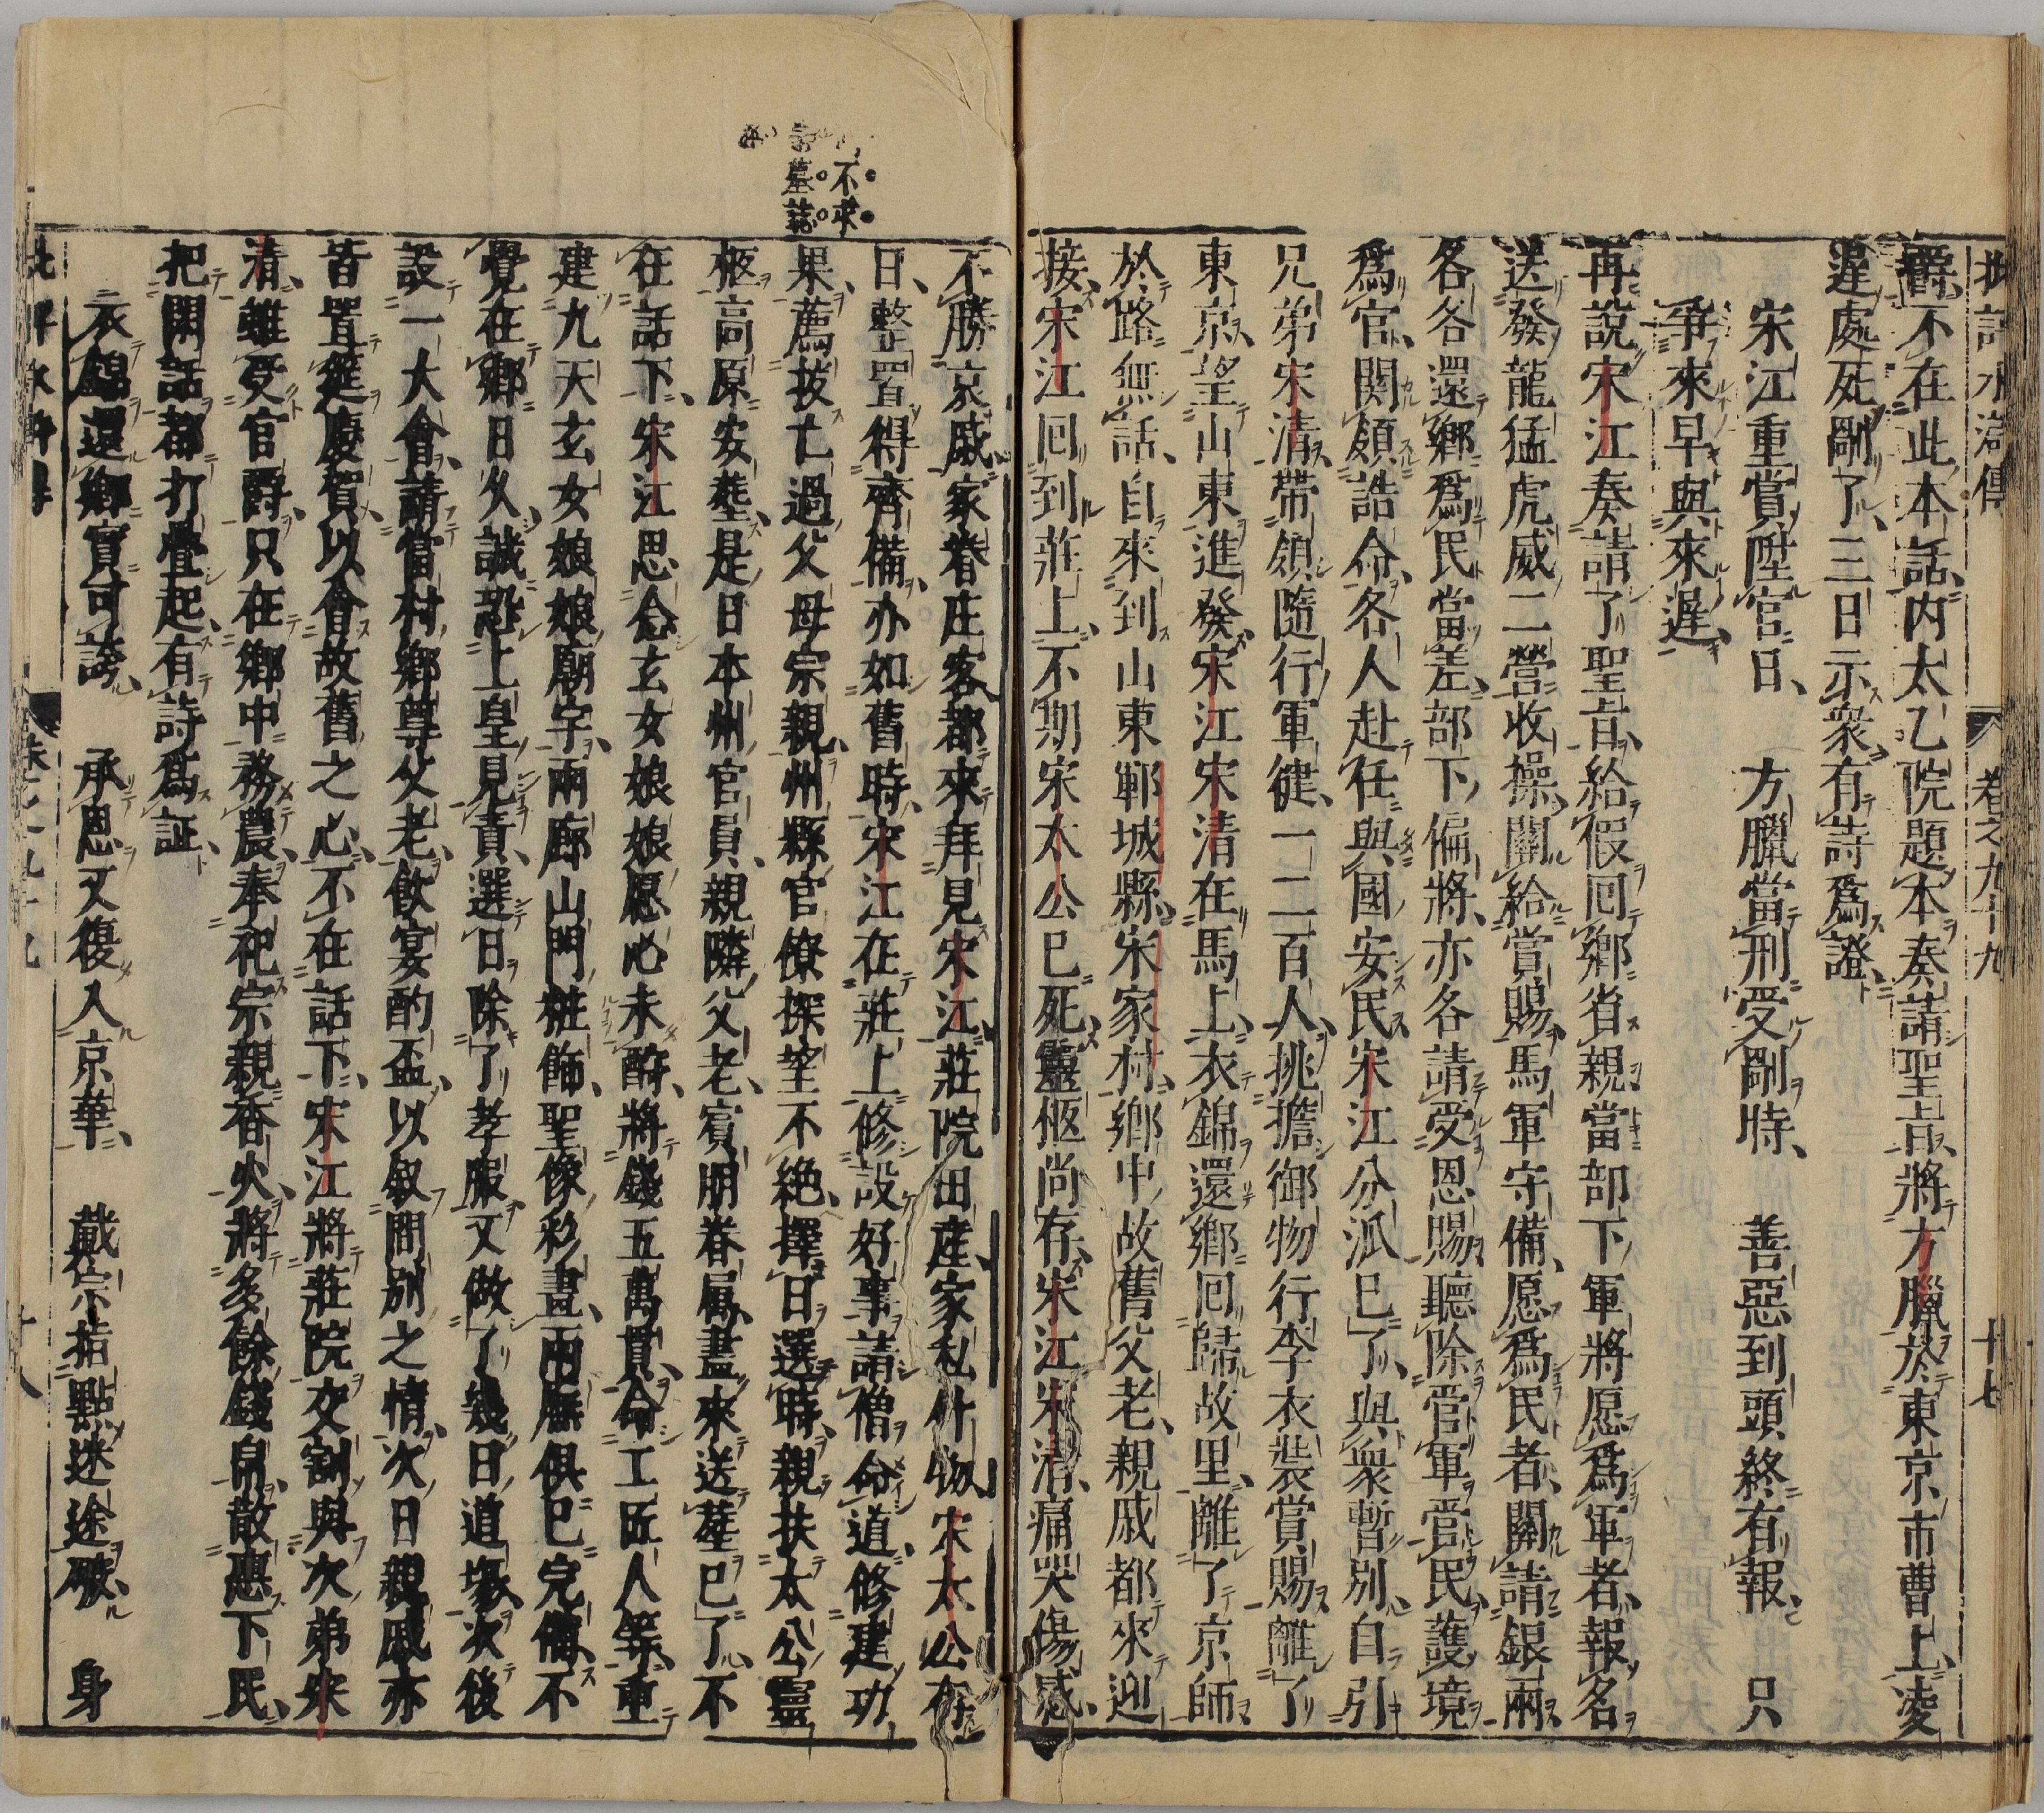 批評水滸傳
卷之九十九
十七
爵、不在此本話、内太乙院題本、奏請聖旨、將方臘於東京市曹上、凌
遲處死、剮了、三日示衆、有詩爲證、
宋江重賞陞官日、方臘當刑受剮時、善惡到頭終有報、只
爭來早與來遲、
再說宋江奏請了聖旨、給假回鄉省親、當部下軍將、愿爲軍者、報名
送發龍猛虎威二營收操、關給賞賜、馬軍守備、愿爲民者、關請銀兩、
各各還鄉、爲民當差、部下偏將、亦各請受恩賜、聽除管軍管民、護境
爲官、關領誥命、各人赴任、與國安民、宋江分派已了、與衆暫別、自引
兄弟宋清、帶領隨行軍健、一二百人、挑擔御物行李衣裝賞賜、離了
東京、望山東進發、宋江宋清在馬上、衣錦還鄉、回歸故里、離了京師、
於路無話、自來到山東鄆城縣宋家村、鄉中故舊父老、親戚都來迎
接、宋江回到莊上、不期宋太公已死、靈柩尚存、宋江宋清、痛哭傷感、
不求
墓誌
不勝哀戚、家眷庄客都來拜見宋江、莊院田產、家私什物、宋太公存
日、整置得齊備、亦如舊時、宋江在莊上修設好事、請僧命道、修建功
果、薦拔亡過父母宗親、州縣官僚、探望不絕、擇日選時、親扶太公靈
柩、高原安葬、是日本州官員、親隣父老、賓朋眷屬、盡來送葬已了、不
在話下、宋江思念玄女娘娘、愿心未酧、將錢五萬貫、命工匠人等、重
建九天玄女娘娘廟宇、兩廊山門、粧飾聖像、彩畫兩廡、俱已完備、不
覺在鄉日久、誠恐上皇見責、選日除了孝服、又做了幾日道塲、次後
設一大會、請當村鄉尊父老、飲宴酌盃、以敘間別之情、次日親戚亦
皆置筵慶賀、以會故舊之心、不在話下、宋江將莊院交割與次弟宋
清、雖受官爵、只在鄉中務農、奉祀宗親香火、將多餘錢帛、散惠下民、
把閑話都打疊起、有詩爲証、
衣錦還鄉實可誇、承恩又復入京華、戴宗指點迷途破、身